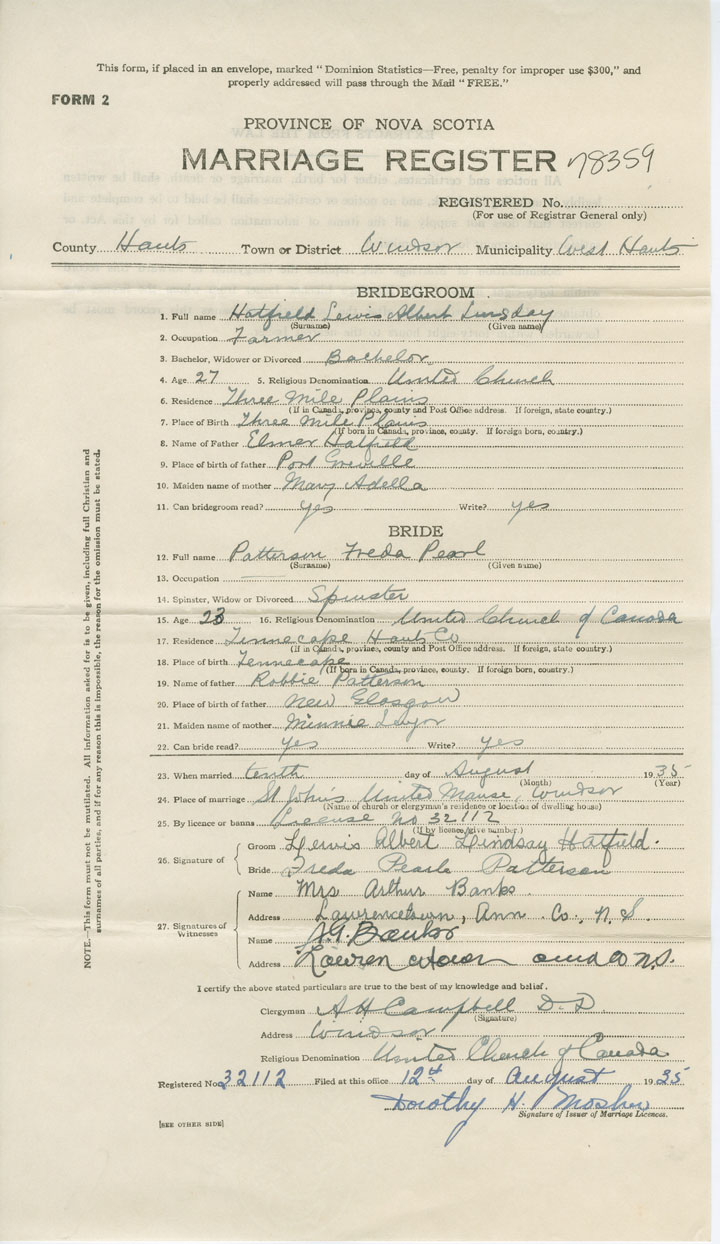 This form, if placed in an envelope, marked "Dominion Statistics—Free, penalty for improper use $300," and
properly addressed will pass through the Mail "FREE."
FORM 2
PROVINCE OF NOVA SCOTIA
MARRIAGE REGISTER 78359
REGISTERED No.
(For use of Registrar General only)
County Hants Town or District Windsor Municipality West Hants
BRIDEGROOM
1. Full name Hatfield Lewis Albert Lindsay
(Surname) (Given name)
2. Occupation Farmer
3. Bachelor, Widower or Divorced Bachelor
4. Age 27 5. Religious Denomination United Church
6. Residence Three Mile Plains
(If in Canada, province, county and Post Office address. If foreign, state country.)
7. Place of Birth Three Mile Plains
(If born in Canada, province, county. If foreign born, country.)
8. Name of Father Elmer Hatfield
9. Place of birth of father Port Greville
10. Maiden name of mother Mary Adella
11. Can bridegroom read? yes Write? yes
BRIDE
12. Full name Patterson Freda Pearl
(Surname) (Given name)
13. Occupation
14. Spinster, Widow or Divorced Spinster
15. Age 23 16. Religious Denomination United Church of Canada
17. Residence Tennecape Hants Co
(If in Canada, province, county and Post Office address. If foreign, state country.)
18. Place of birth Tennecape
(If born in Canada, province, county. If foreign born, country.)
19. Name of father Robbie Patterson
20. Place of birth of father New Glasgow
21. Maiden name of mother Minnie
22. Can bride read? yes Write? yes
23. When married tenth day of August 1935
(Month) (Year)
24. Place of marriage St John's United Manse, Windsor
(Name of church or clergyman's residence or location of dwelling house)
25. By licence or banns License no 32112
(If by licence, give number.)
26. Signature of
Groom Lewis Albert Lindsay Hatfield.
Bride Freda Pearle Patterson
27. Signatures of Witnesses
Name Mrs Arthur Banks
Address Lawrencetown, Ann. Co., N.S.
Name Banks
Address N.S.
I certify the above stated particulars are true to the best of my knowledge and belief.
Clergyman A H Campbell D.D.
(Signature)
Address Windsor
Religious Denomination United Church of Canada
Registered No. 32112 Filed at this office 12th day of August 1935
Dorothy H. Mosher
Signature of Issuer of Marriage Licences.
[SEE OTHER SIDE]
NOTE.—This form must not be mutilated. All information asked for is to be given, including full Christian and
surnames of all parties, and if for any reason this is impossible, the reason for the omission must be stated.